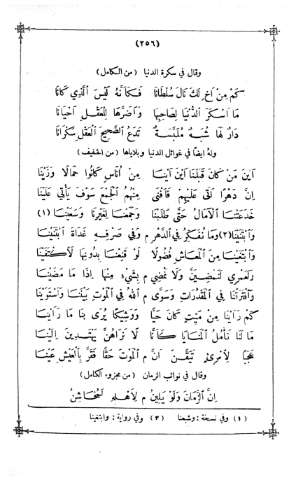 (٢٥٦)
وقال في سكرة الدنيا (من الكامل)
كَمْ مِنْ أَخٍ لَكَ نَالَ سُلْطَانَا فَكَأَنَّهُ لَيْسَ الَّذِي كَانَا
مَا أَسْكَرَ الدُّنْيَا لِصَاحِبِهَا وَأَضَرَّهَا لِلْعَقْلِ أَحْيَانَا
دَارٌ لَهَا شُبَهٌ مُلَبِّسَةٌ تَدَعُ الصَّحِيحَ الْعَقْلِ سَكْرَانَا
وله ايضًا في غوائل الدنيا وبلاياها (من الخفيف)
أَيْنَ مَنْ كَانَ قَبْلَنَا أَيْنَ أَيْنَا مِنْ أُنَاسٍ كَانُوا جَمَالًا وَزَيْنَا
إِنَّ دَهْرًا أَتَى عَلَيْهِمْ فَأَفْنَى مِنْهُمُ الْجَمْعَ سَوْفَ يَأْتِي عَلَيْنَا
خَدَعَتْنَا الْآمَالُ حَتَّى طَلَبْنَا وَجَمَعْنَا لِغَيْرِنَا وَسَعَيْنَا (١)
وَابْتَنَيْنَا (٢) وَمَا نُفَكِّرُ فِي الدَّهْرِ م وَفِي صَرْفِهِ غَدَاةَ ابْتَنَيْنَا
وَابْتَغَيْنَا مِنَ الْمَعَاشِ فُضُولًا لَوْ قَنِعْنَا بِدُونِهَا لَاكْتَفَيْنَا
وَلَعَمْرِي لَنَمْضِيَنَّ وَلَا نَمْضِي م بِشَيْءٍ مِنْهَا إِذَا مَا مَضَيْنَا
وَافْتَرَقْنَا فِي الْمَقْدُرَاتِ وَسَوَّى م اللهُ فِي الْمَوْتِ بَيْنَنَا وَاسْتَوَيْنَا
كَمْ رَأَيْنَا مِنْ مَيِّتٍ كَانَ حَيًّا وَوَشِيكًا يُرَى بِنَا مَا رَأَيْنَا
مَا لَنَا نَأْمُلُ الْمَنَايَا كَأَنَّا لَا نَرَاهُنَّ يَهْتَدِينَ إِلَيْنَا
عَجَبًا لِامْرِئٍ تَيَقَّنَ أَنَّ م الْمَوْتَ حَقًّا فَقَرَّ بِالْعَيْشِ عَيْنَا
وقال في نوائب الزمان (من مجزوء الكامل)
إِنَّ الزَّمَانَ وَلَوْ يَلِينُ م لِأَهْلِهِ لَمُخَاشِنُ
(١) وفي نسخة: وشبعنا (٢) وفي رواية: وابتغينا